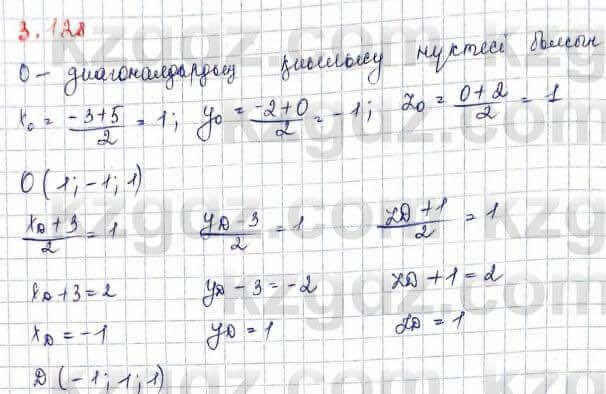 3.128
O - диагоналдардың қиылысу нүктесі болсын
x₀ = (-3+5)/2 = 1; y₀ = (-2+0)/2 = -1; z₀ = (0+2)/2 = 1
O(1;-1;1)
(x_D+3)/2 = 1 (y_D-3)/2 = 1 (z_D+1)/2 = 1
x_D+3=2 y_D-3=-2 z_D+1=2
x_D=-1 y_D=1 z_D=1
D(-1;1;1)